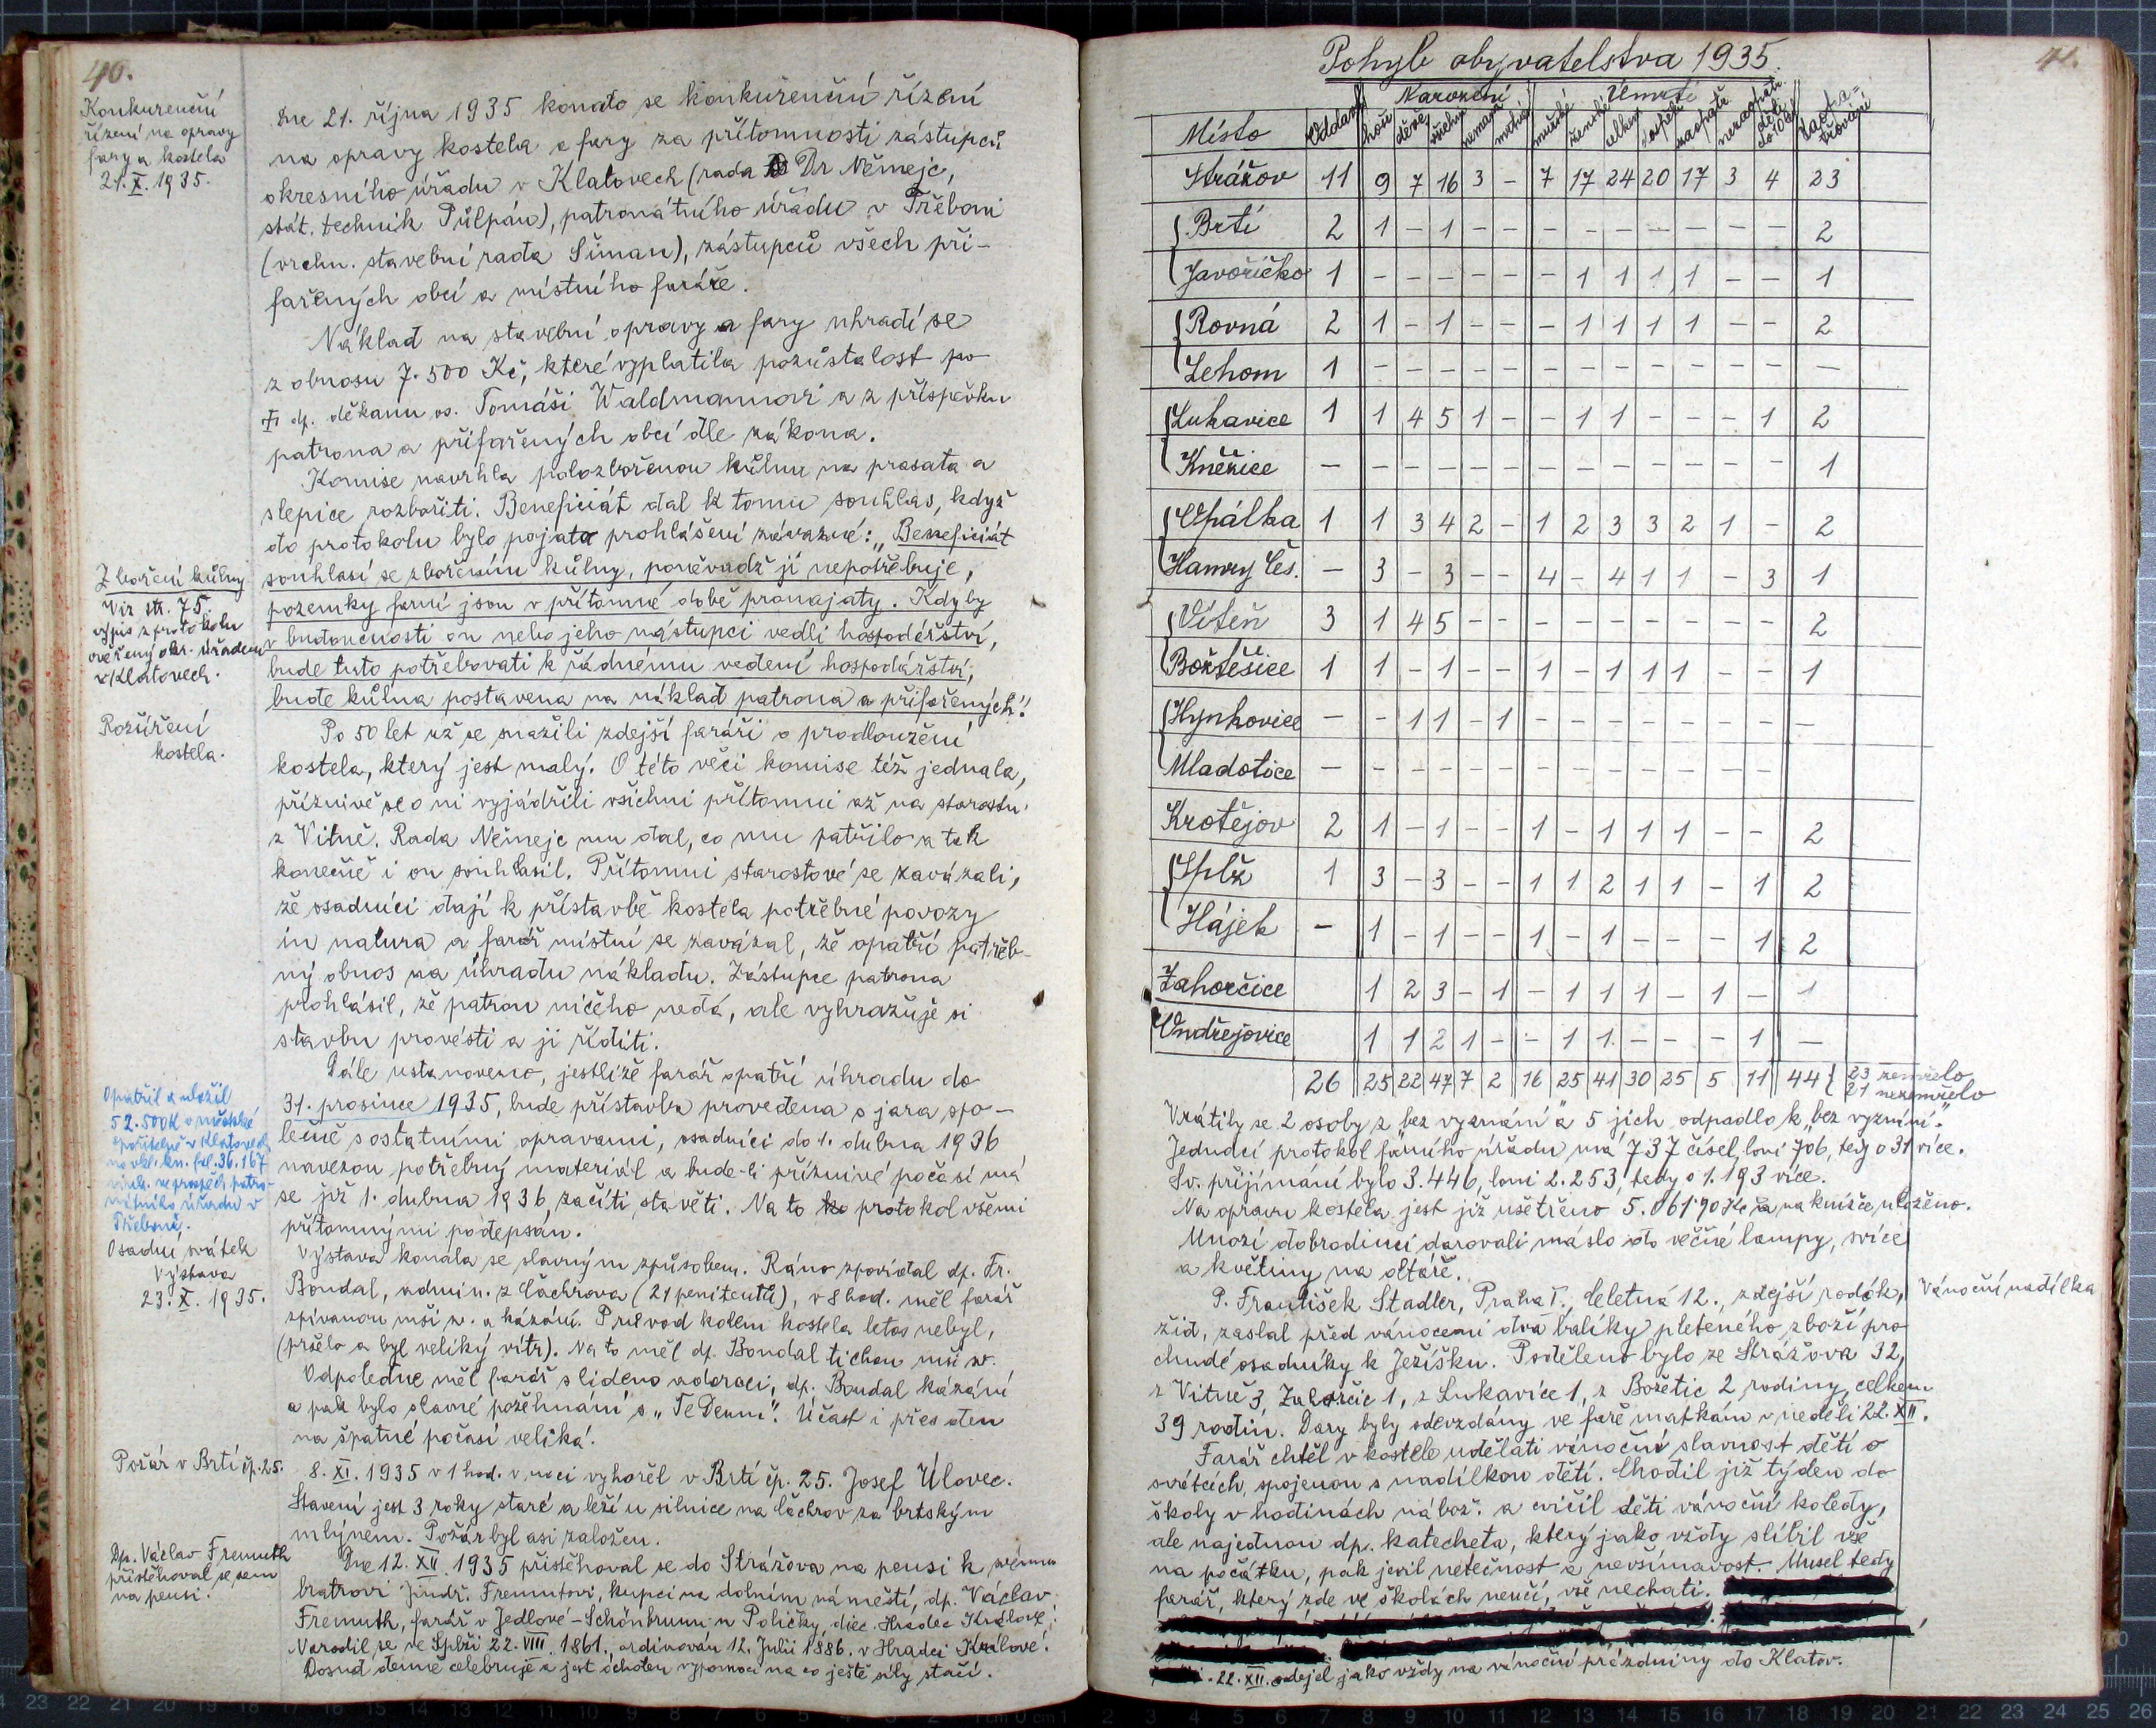 40.
Konkurenční
řízení na opravy
fary a kostela
21. X. 1935.
Dne 21. října 1935 konáto se konkurenční řízení
na opravy kostela a fary za přítomnosti zástupců
okresního úřadu v Klatovech (rada Dr Němejc,
stát. technik Půlpán), patronátního úřadu v Třeboni
(vrchn. stavební rada Šiman), zástupců všech při-
fařených obcí a místního faráře.
Náklad na stavební opravy a fary uhradí se
z obnosu 7.500 Kč, které vyplatila pozůstalost po
† dp. děkanu os. Tomáši Waldmannovi a z příspěvku
patrona a přifařených obcí dle zákona.
Komise navrhla polozbořenou kůlnu na prasata a
slepice rozbořiti. Beneficiát dal k tomu souhlas, když
do protokolu bylo pojato prohlášení závazné: „Beneficiát
Zboření kůlny
souhlasí se zbořením kůlny, poněvadž jí nepotřebuje,
Viz str. 75.
výpis z protokolu
ověřený okr. úřadem
v Klatovech.
pozemky farní jsou v přítomné době pronajaty. Kdyby
v budoucnosti on nebo jeho nástupci vedli hospodářství,
bude tuto potřebovati k řádnému vedení hospodářství,
bude kůlna postavena na náklad patrona a přifařených".
Rozšíření
kostela.
Po 50 let už se snažili zdejší faráři o prodloužení
kostela, který jest malý. O této věci komise též jednala,
příznivě se o ni vyjádřili všichni přítomni až na starostu
z Vítně. Rada Němejc mu dal, co mu patřilo a tak
konečně i on souhlasil. Přítomni starostové se zavázali,
že osadníci dají k přístavbě kostela potřebné povozy
in natura a farář místní se zavázal, že opatří potřeb-
ný obnos na úhradu nákladu. Zástupce patrona
prohlásil, že patron ničeho nedá, ale vyhrazuje si
stavbu provésti a ji říditi.
Dále ustanoveno, jestliže farář opatří úhradu do
31. prosince 1935, bude přístavba provedena s jara spo-
lečně s ostatními opravami, osadníci do 1. dubna 1936
navezou potřebný materiál a bude-li příznivé počasí má
se již 1. dubna 1936 začíti stavěti. Na to protokol všemi
přítomnými podepsán.
Opatřil a uložil
52.500 K v městské
spořitelně v Klatovech
na vkl. kn. fol. 36.167
vink. ve prospěch patro-
nátního úřadu v
Třeboni.
Osadní svátek
Výstava
23. X. 1935.
Výstava konala se slavným způsobem. Ráno zpovídal dp. Fr.
Boudal, admin. z Čachrova (21 penitentů), v 8 hod. měl farář
zpívanou mši sv. a kázání. Průvod kolem kostela letos nebyl,
(pršelo a byl veliký vítr). Na to měl dp. Boudal tichou mši sv.
Odpoledne měl farář s lidem adoraci, dp. Boudal kázání
a pak bylo slavné požehnání s „Te Deum". Účast i přes den
na špatné počasí veliká.
Požár v Brtí čp. 25.
8. XI. 1935 v 1 hod. v noci vyhořel v Brtí čp. 25. Josef Úlovec.
Stavení jest 3 roky staré a leží u silnice na Čachrov za brtským
mlýnem. Požár byl asi založen.
Dp. Václav Fremuth
přistěhoval se sem
na pensi.
Dne 12. XII. 1935 přistěhoval se do Strážova na pensi k svému
bratrovi Jindř. Fremutovi, kupci na dolním náměstí, dp. Václav
Fremuth, farář v Jedlové-Schönbrunn u Poličky, diec. Hradec Králové.
Narodil se ve Splži 22. VIII. 1861., ordinován 12. Julii 1886. v Hradci Králové.
Dosud denně celebruje a jest ochoten vypomoci na co ještě síly stačí.
41.
Pohyb obyvatelstva 1935.
Narození Úmrtí
Místo Oddaní hoši děvč. všichni neman. mrtví mužské ženské celkem dospělí zaopatř. nezaopatř. děti do 10 let Zaopa-
třování
Strážov 11 9 7 16 3 – 7 17 24 20 17 3 4 23
Brtí 2 1 – 1 – – – – – – – – – 2
Javoříčko 1 – – – – – – 1 1 1 1 – – 1
Rovná 2 1 – 1 – – – 1 1 1 1 – – 2
Lehom 1 – – – – – – – – – – – – –
Lukavice 1 1 4 5 1 – – 1 1 – – – 1 2
Kněžice – – – – – – – – – – – – – 1
Opálka 1 1 3 4 2 – 1 2 3 3 2 1 – 2
Hamry Čes. – 3 – 3 – – 4 – 4 1 1 – 3 1
Víteň 3 1 4 5 – – – – – – – – – 2
Božtěšice 1 1 – 1 – – 1 – 1 1 1 – – 1
Hynkovice – – 1 1 – 1 – – – – – – – –
Mladotice – – – – – – – – – – – – –
Krotějov 2 1 – 1 – – 1 – 1 1 1 – – 2
Splž 1 3 – 3 – – 1 1 2 1 1 – 1 2
Hájek – 1 – 1 – – 1 – 1 – – – 1 2
Zahorčice 1 2 3 – 1 – 1 1 1 – 1 – 1
Ondřejovice 1 1 2 1 – – 1 1 – – – 1 –
26 25 22 47 7 2 16 25 41 30 25 5 11 44 { 23 zemřelo
21 nezemřelo
Vrátily se 2 osoby z „bez vyznání" a 5 jich odpadlo k „bez vyznání".
Jednací protokol farního úřadu má 737 čísel, loni 706, tedy o 31 více.
Sv. přijímání bylo 3.446, loni 2.253, tedy o 1.193 více.
Na opravu kostela jest již ušetřeno 5.061'90 Kč a na knížce uloženo.
Mnozí dobrodinci darovali máslo do věčné lampy, svíce
a květiny na oltáře.
Vánoční nadílka
P. František Stadler, Praha I., Celetná 12., zdejší rodák,
žid, zaslal před vánocemi dva balíky pleteného zboží pro
chudé osadníky k Ježíšku. Poděleno bylo ze Strážova 32,
z Vítně 3, Zahorčic 1, z Lukavice 1, z Božetic 2 rodiny, celkem
39 rodin. Dary byly odevzdány ve faře matkám v neděli 22. XII.
Farář chtěl v kostele udělati vánoční slavnost dětí o
svátcích, spojenou s nadílkou dětí. Chodil již týden do
školy v hodinách nábož. a cvičil děti vánoční koledy,
ale najednou dp. katecheta, který jako vždy slíbil vše
na počátku, pak jevil netečnost a nevšímavost. Musel tedy
farář, který zde ve školách neučí, vše nechati.
22. XII. odejel jako vždy na vánoční prázdniny do Klatov.